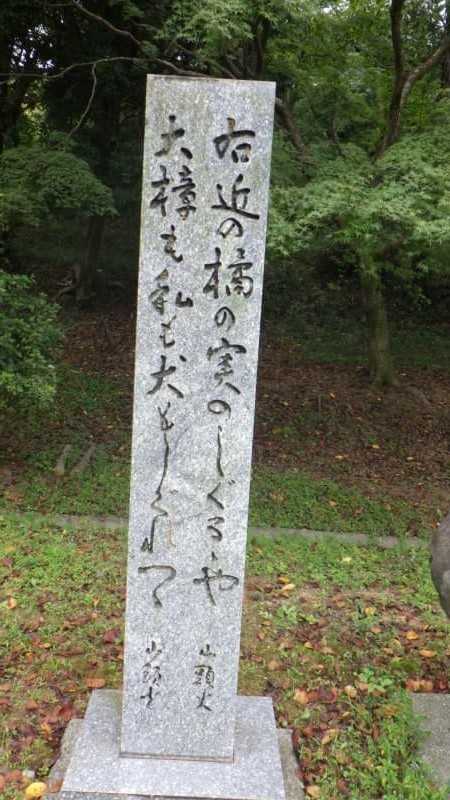 右近の橘の実のしぐるゝや
山頭火
大樟も私も犬もしぐれつゝ
山頭火